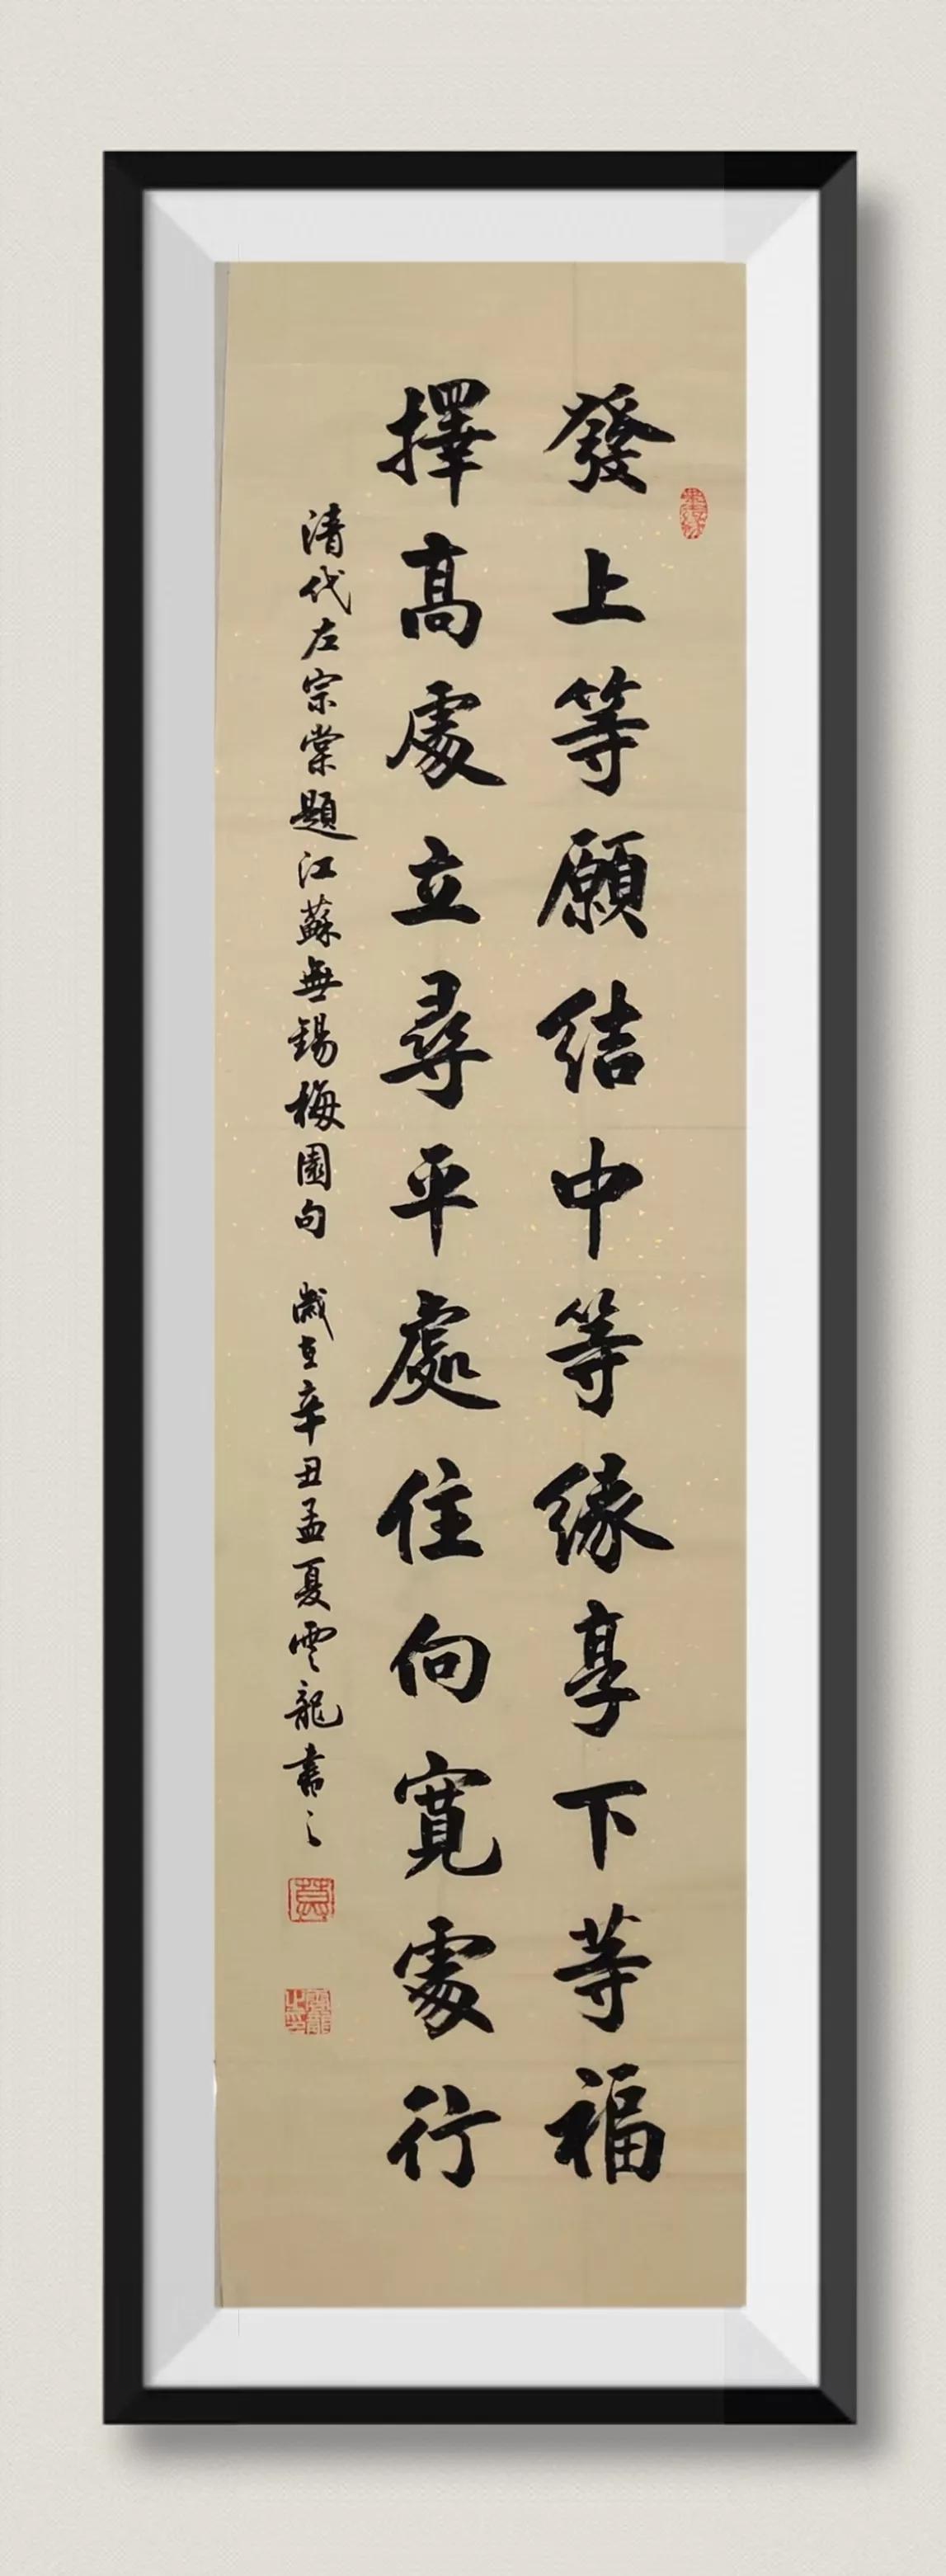 發上等願結中等緣享下等福
擇高處立尋平處住向寬處行
清代左宗棠題江蘇無錫梅園句 歲在辛丑孟夏雲龍書之